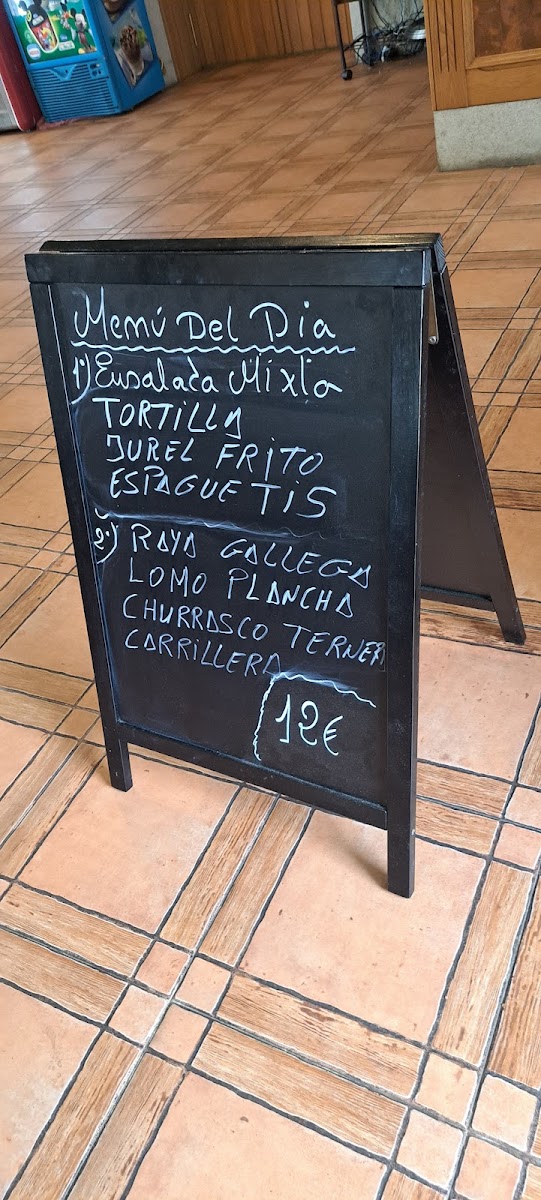 Menú Del Dia
1º) Ensalada Mixta
TORTILLA
JUREL FRITO
ESPAGUETIS
2º) RAYA GALLEGA
LOMO PLANCHA
CHURRASCO TERNERA
CARRILLERA
12€